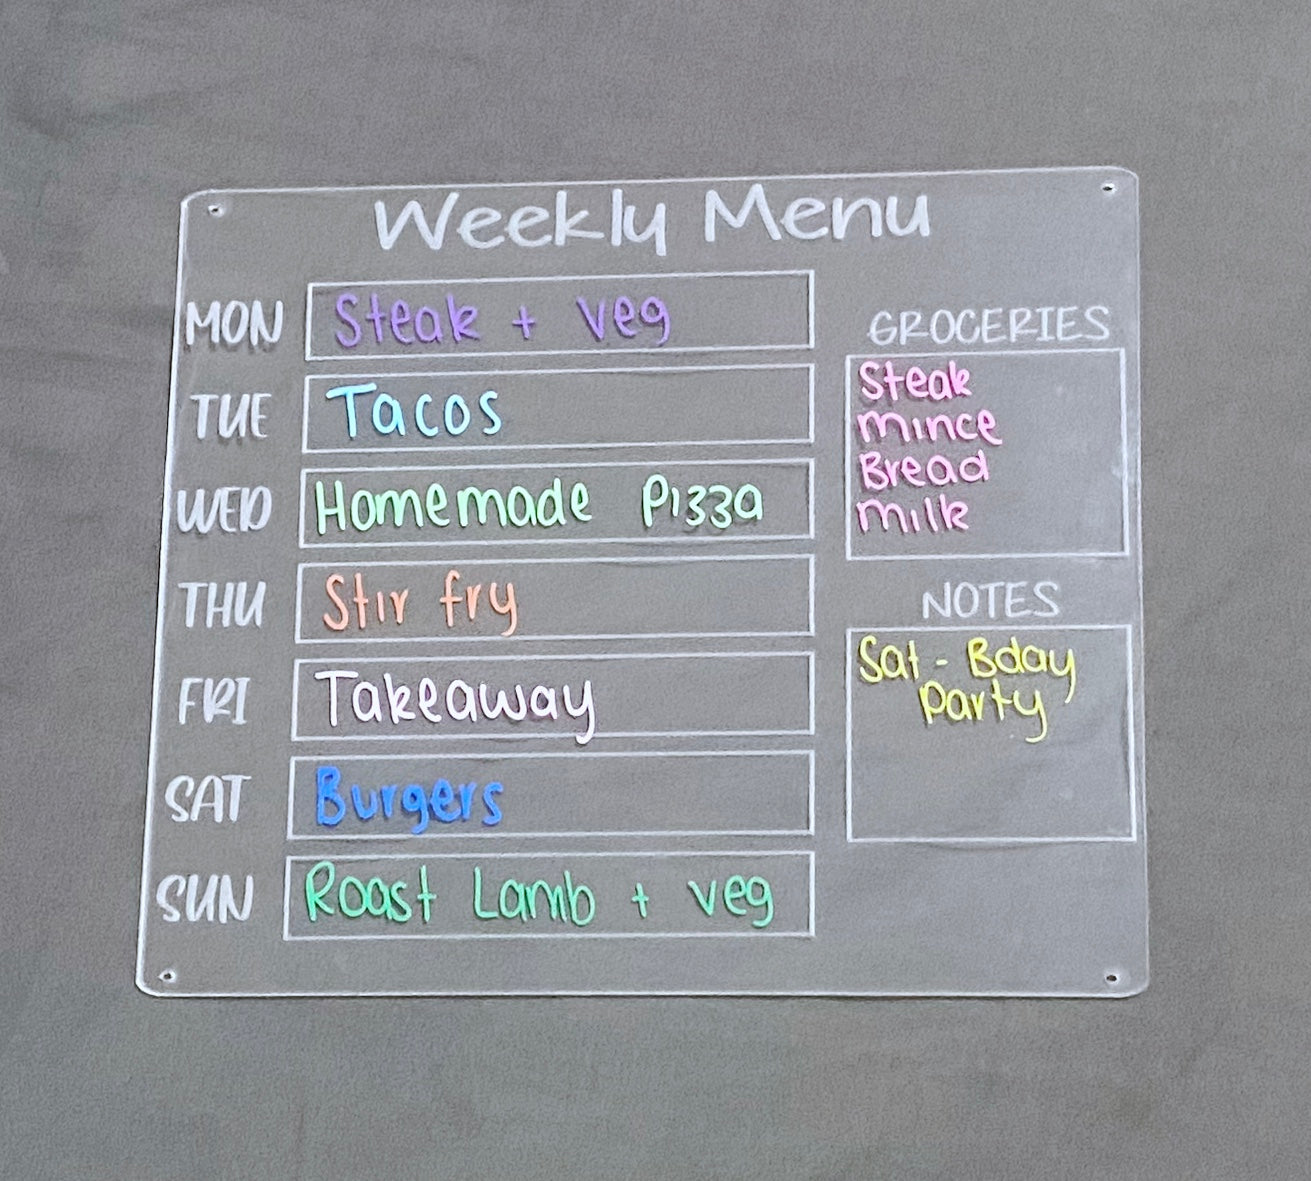 Weekly Menu
MON Steak + veg
TUE Tacos
WED Homemade Pizza
THU Stir fry
FRI Takeaway
SAT Burgers
SUN Roast Lamb + veg
GROCERIES
Steak
Mince
Bread
Milk
NOTES
Sat - Bday
Party